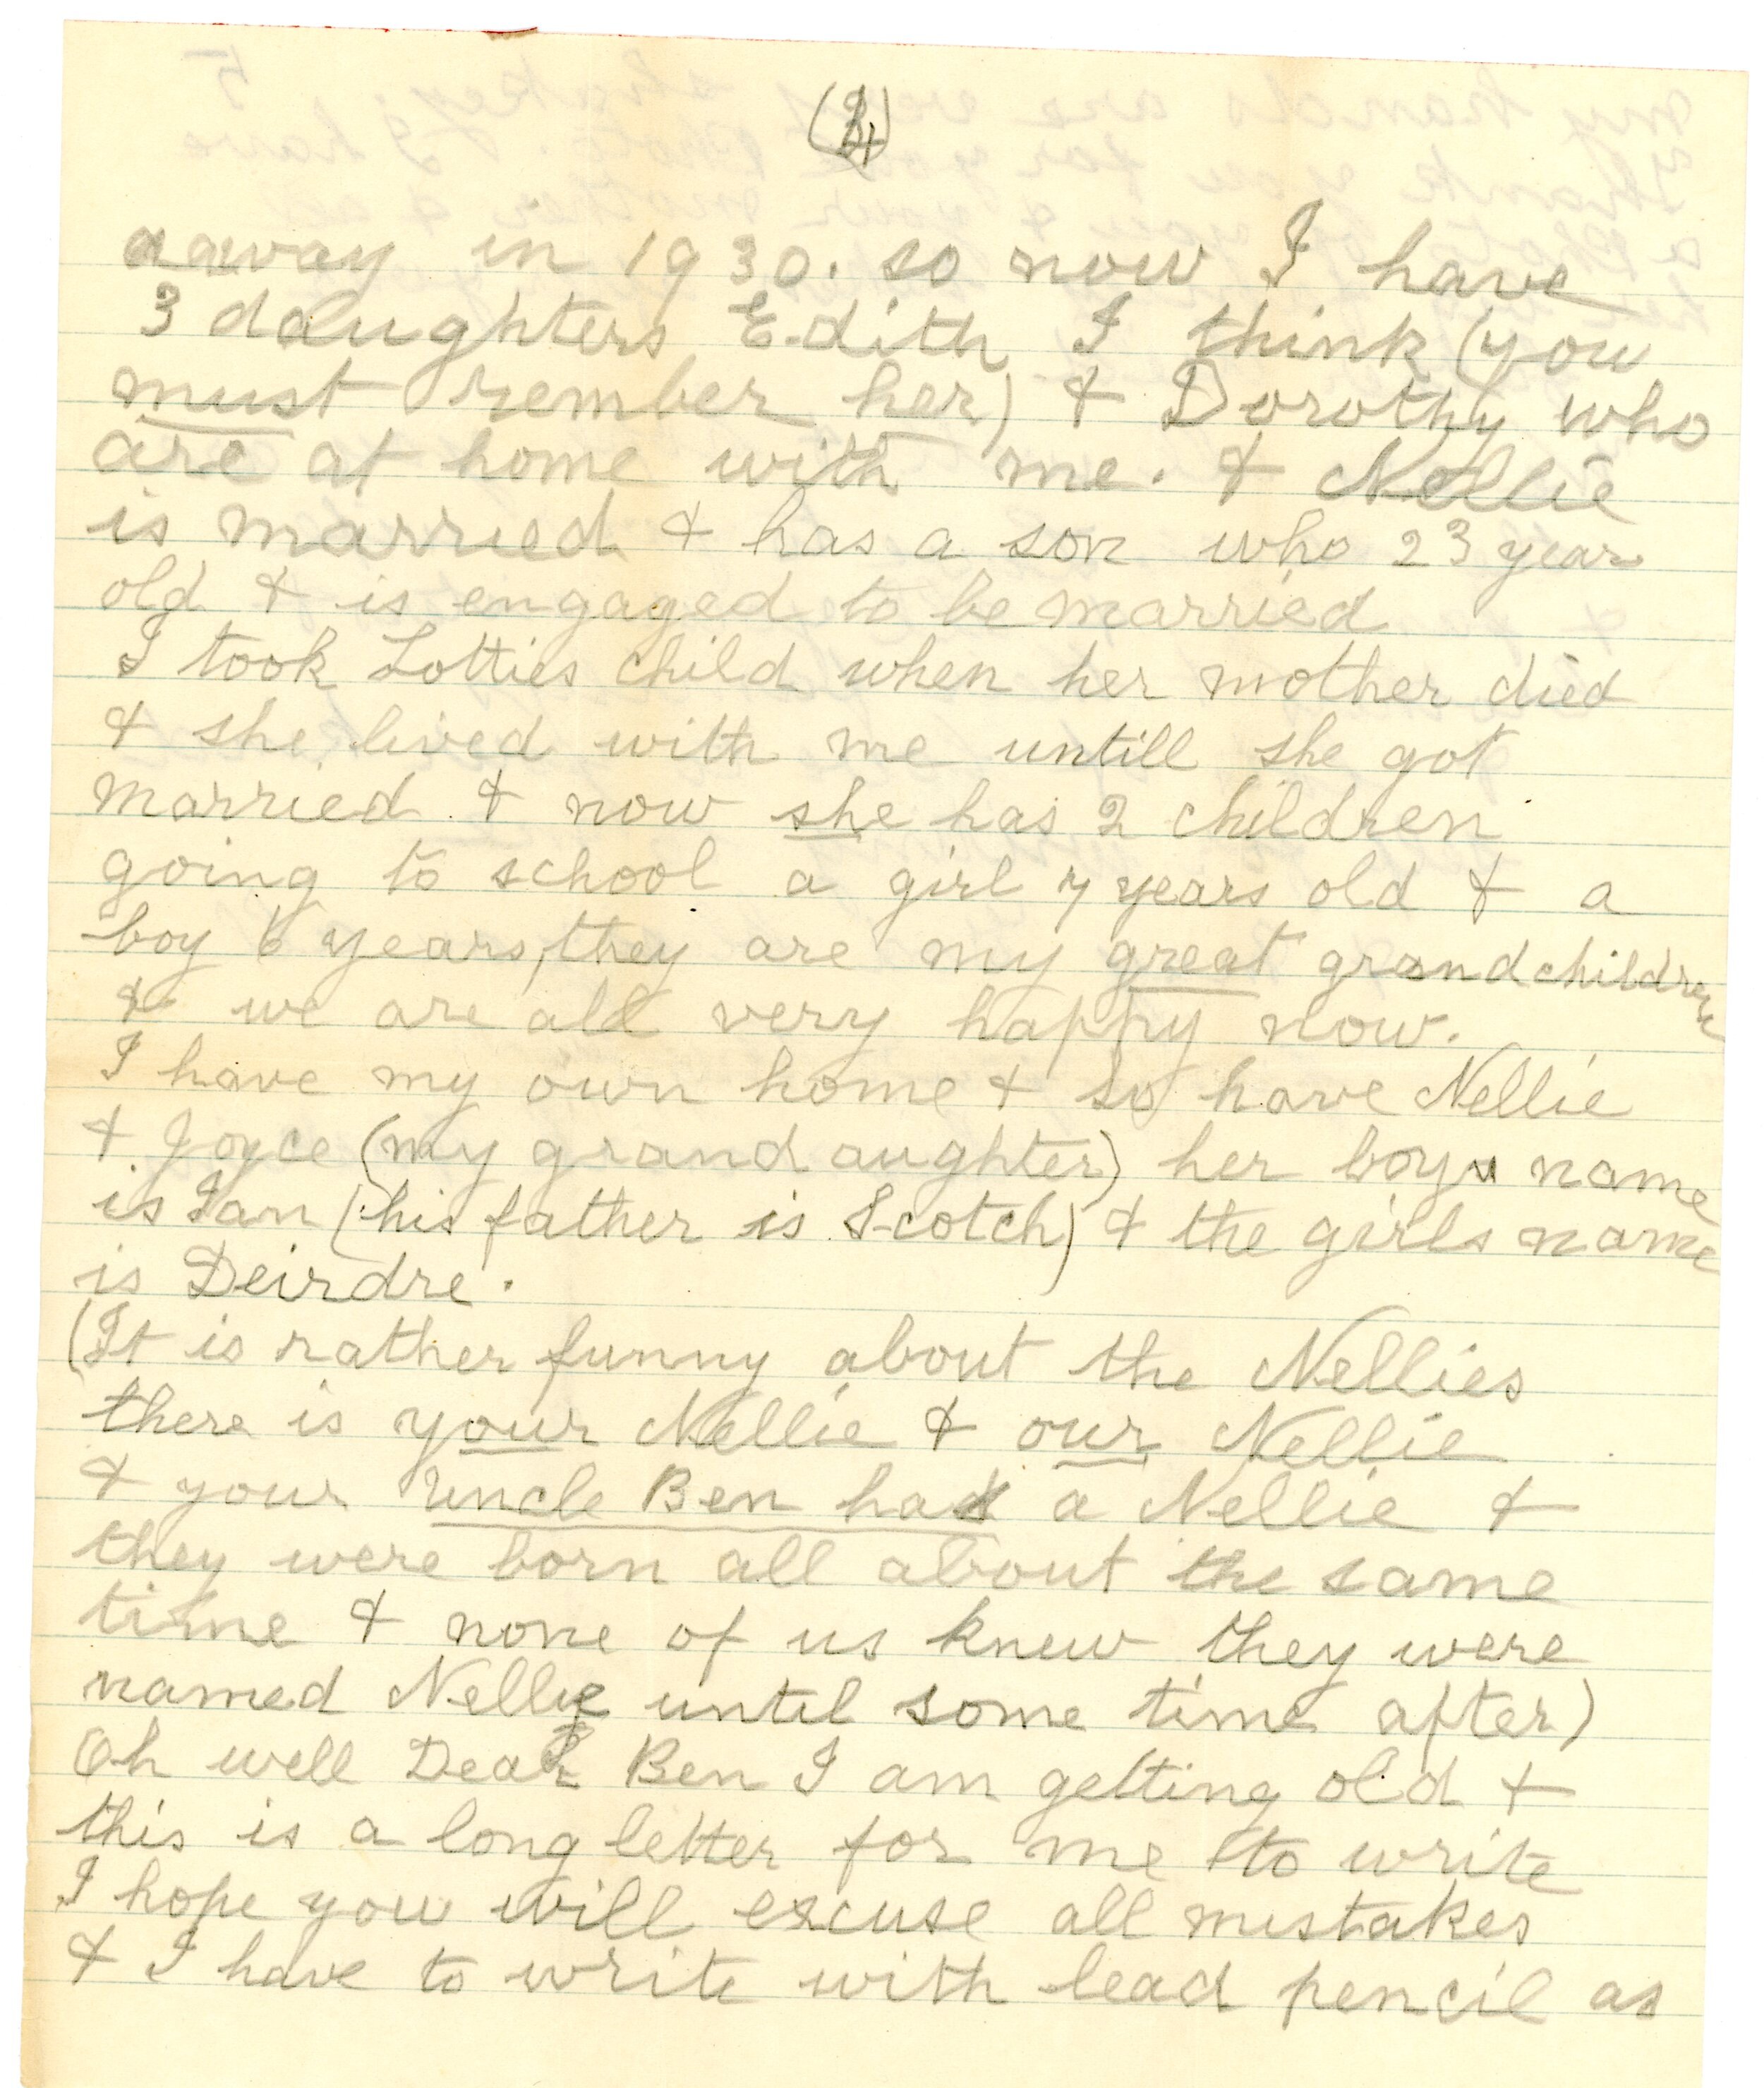 (4)
away in 1930. so now I have
3 daughters Edith I think (you
must rember her) & Dorothy who
are at home with me. & Nellie
is married & has a son who 23 years
old & is engaged to be married
I took Lotties child when her mother died
& she lived with me untill she got
married & now she has 2 children
going to school a girl 7 years old & a
boy 6 years, they are my great grandchildren
& we are all very happy now.
I have my own home & so have Nellie
& Joyce (my grandaughter) her boys name
is Ian (his father is Scotch) & the girls name
is Deirdre.
(It is rather funny about the Nellies
there is your Nellie & our Nellie
& your Uncle Ben has a Nellie &
they were born all about the same
time & none of us knew they were
named Nellie until some time after)
Oh well Dear Ben I am getting old &
this is a long letter for me to write
I hope you will excuse all mistakes
& I have to write with lead pencil as